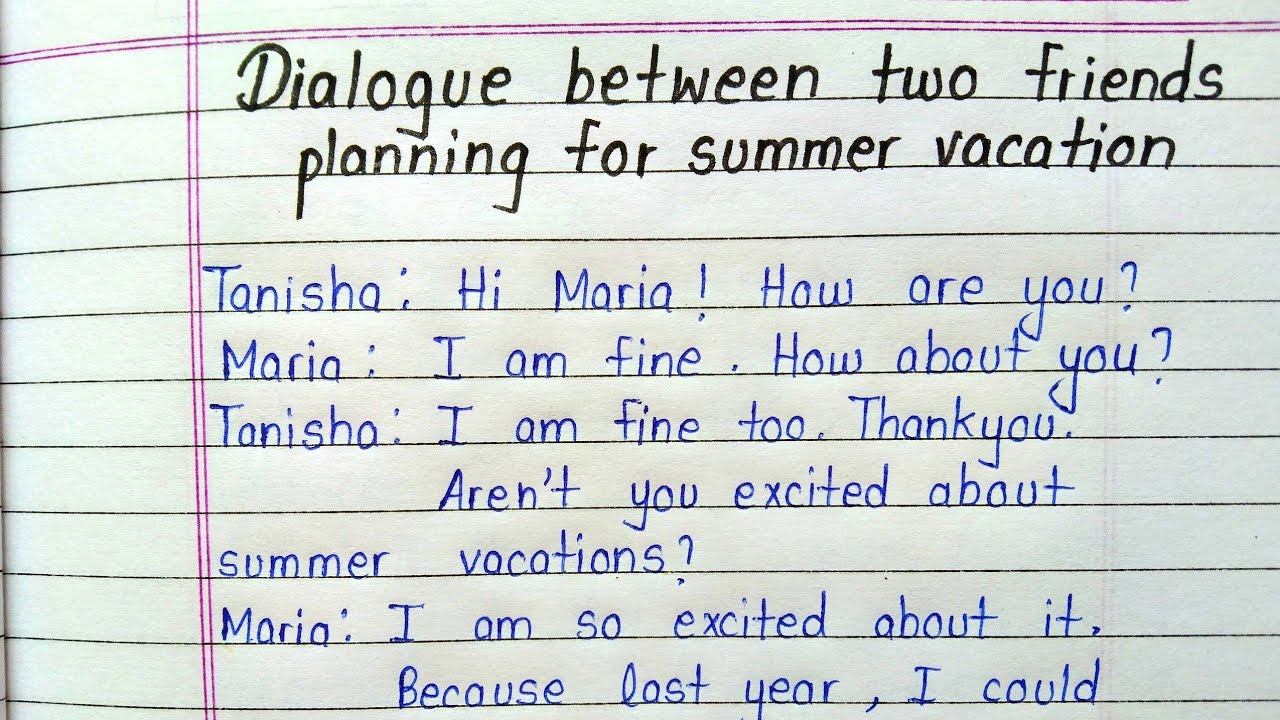 Dialogue between two friends
planning for summer vacation
Tanisha: Hi Maria! How are you?
Maria: I am fine. How about you?
Tanisha: I am fine too. Thankyou.
Aren't you excited about
summer vacations?
Maria: I am so excited about it.
Because last year, I could